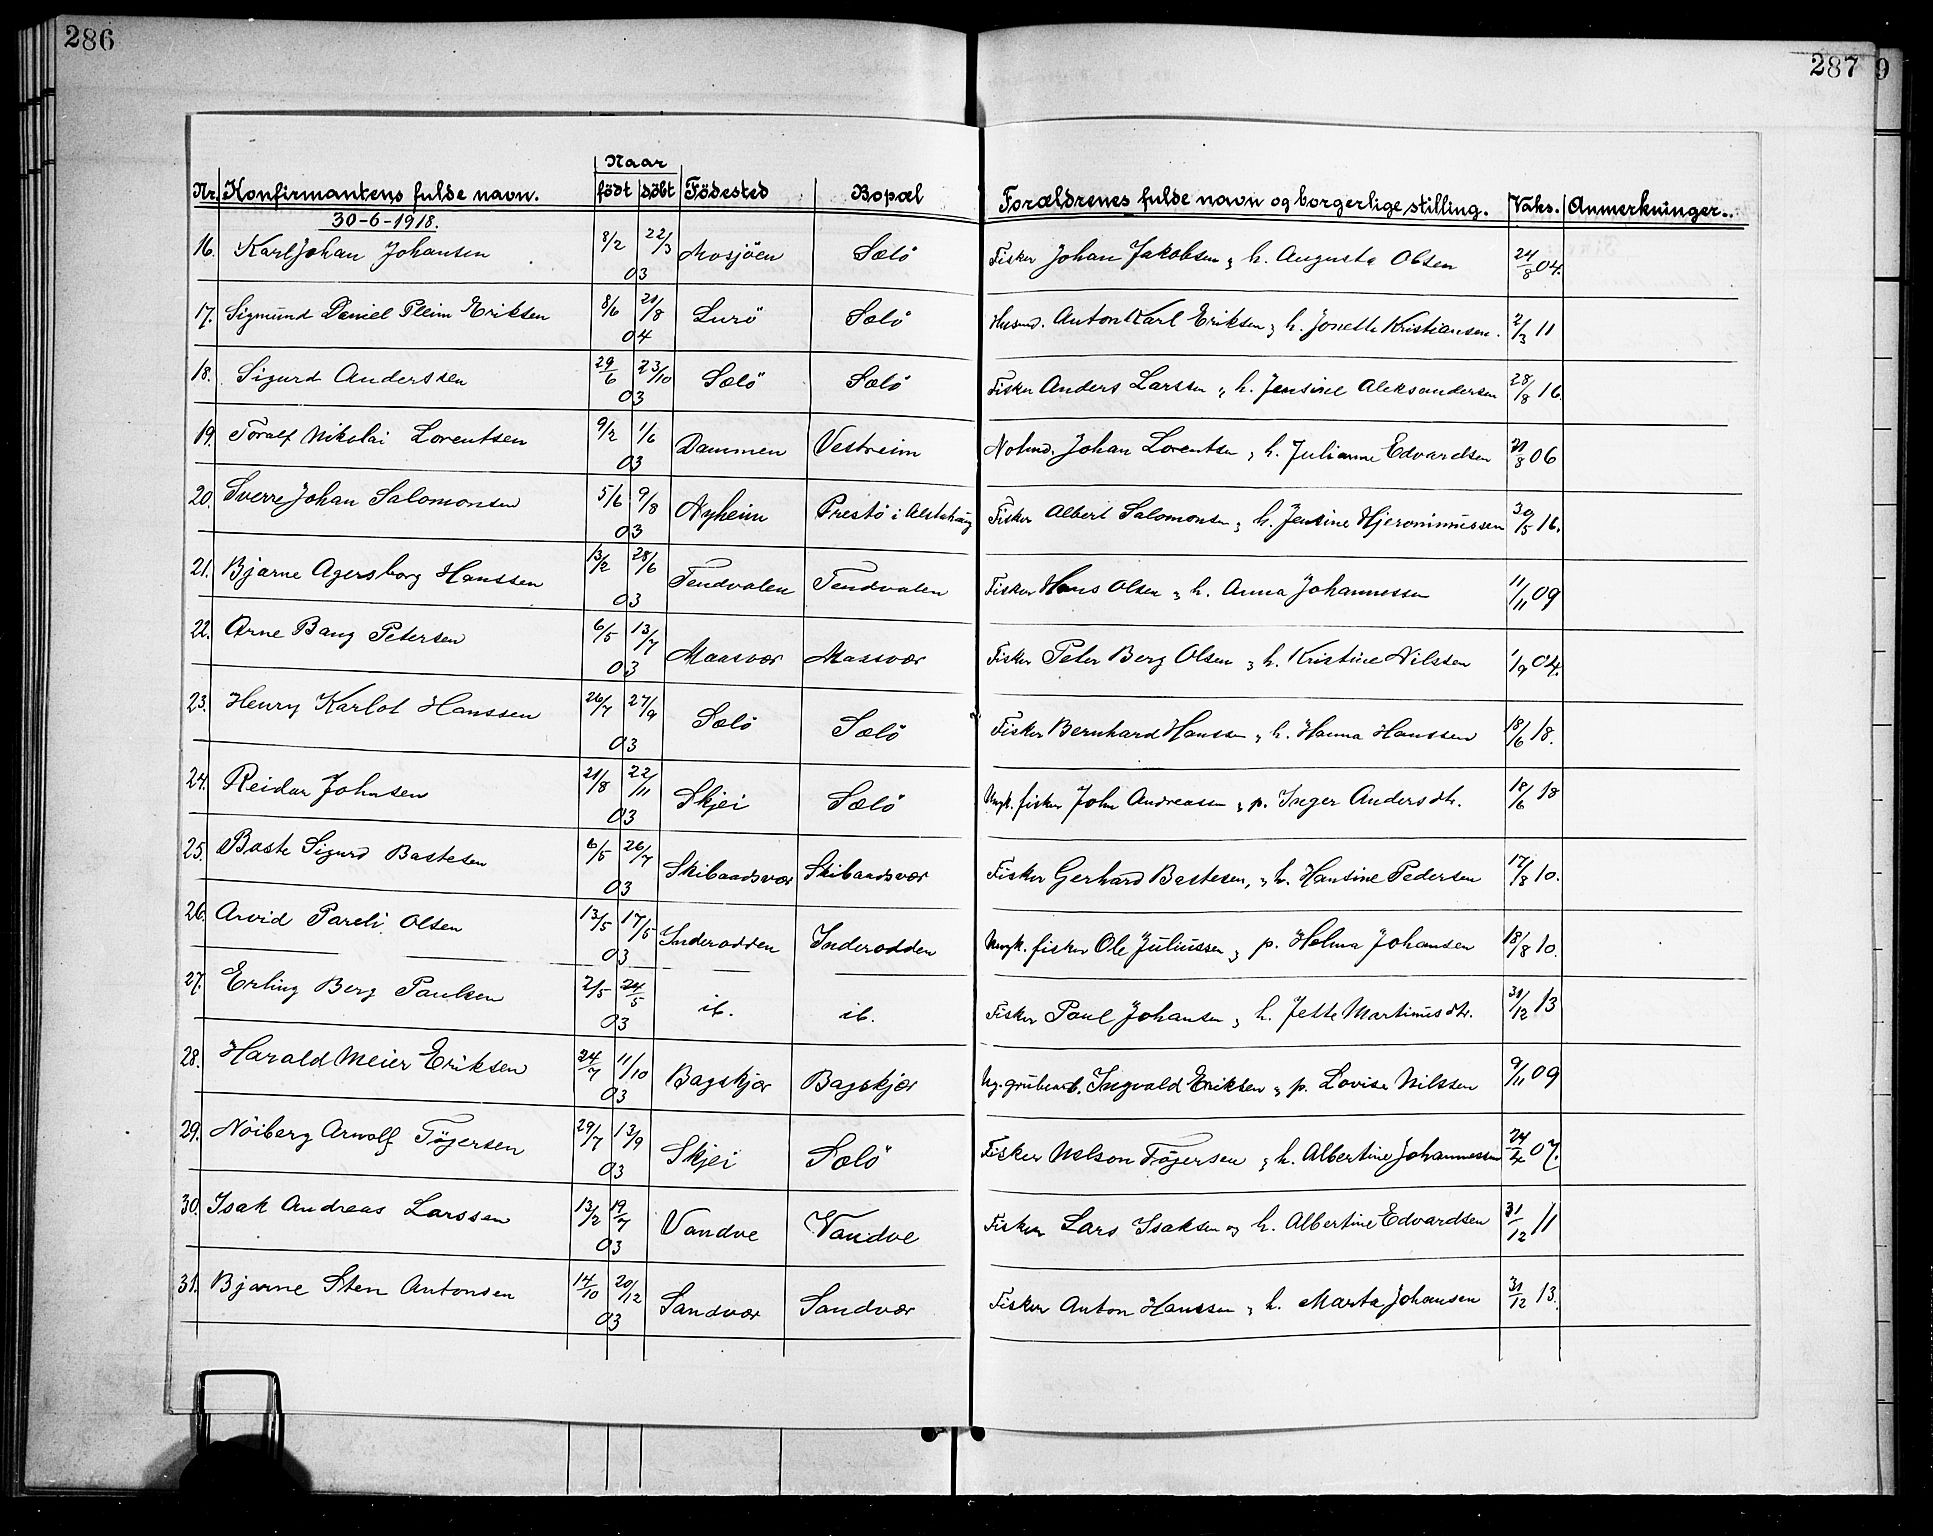 286
287
9
Naar
Nr. Konfirmantens fulde navn. födt döbt Födested Bopæl Forældrenes fulde navn og borgerlige stilling. Vaks. Anmerkninger.
30-6-1918.
16. Karl Johan Johansen 8/2 22/3 03 Mosjöen Sælö Fisker Johan Jakobsen og h. Augusta Olsen 24/8 04.
17. Sigmund Daniel Pleim Eriksen 8/6 21/8 04 Lurö Sælö Husmd. Anton Karl Eriksen og h. Jonette Kristiansen. 2/3 11
18. Sigurd Anderssen 29/6 23/10 03 Sælö Sælö Fisker Anders Larssen og h. Jensine Aleksandersen 28/8 16.
19. Toralf Nikolai Lorentsen 9/2 1/6 03 Dammen Vestreim Notmd. Johan Lorentsen og h. Julianne Edvardsen 21/8 06
20. Sverre Johan Salomonsen 5/6 9/8 03 Nyheim Prestö i Alstahaug Fisker Albert Salomonsen og h. Jensine Hjeronimussen 30/5 16.
21. Bjarne Agersborg Hanssen 13/2 28/6 03 Tendvalen Tendvalen Fisker Hans Olsen og h. Anna Johannessen 11/11 09
22. Arne Bang Petersen 6/5 13/7 03 Maasvær Maasvær Fisker Peter Berg Olsen og h. Kristine Nilssen 1/9 04.
23. Henry Karlot Hanssen 26/7 27/9 03 Sælö Sælö Fisker Bernhard Hanssen og h. Hanna Hanssen 18/6 18.
24. Reidar Johnsen 21/8 22/11 03 Skjei Sælö Ungk. fisker John Andreassen og p. Inger Andersdtr. 18/6 18
25. Baste Sigurd Bastesen 6/5 26/7 03 Skibaadsvær Skibaadsvær Fisker Gerhard Bastesen, og h. Hansine Pedersen 17/8 10.
26. Arvid Pareli Olsen 13/5 17/5 03 Inderodden Inderodden Ungk. fisker Ole Juliussen og p. Helma Johansen 18/8 10.
27. Erling Berg Paulsen 2/5 24/5 03 ib. ib. Fisker Paul Johansen og h. Jette Martinusdtr. 31/12 13
28. Harald Meier Eriksen 24/7 11/10 03 Bagskjær Bagskjær Ug. grubearb. Ingvald Eriksen og p. Lovise Nilssen 9/11 09
29. Nöiberg Arnolf Tögersen 29/7 13/9 03 Skjei Sælö Fisker Nelson Tögersen og h. Albertine Johannessen 24/4 07.
30. Isak Andreas Larssen 13/2 19/7 03 Vandve Vandve Fisker Lars Isaksen og h. Albertine Edvardsen 31/12 11
31. Bjarne Sten Antonsen 14/10 20/12 03 Sandvær Sandvær Fisker Anton Hanssen og h. Marta Johansen 31/12 13.